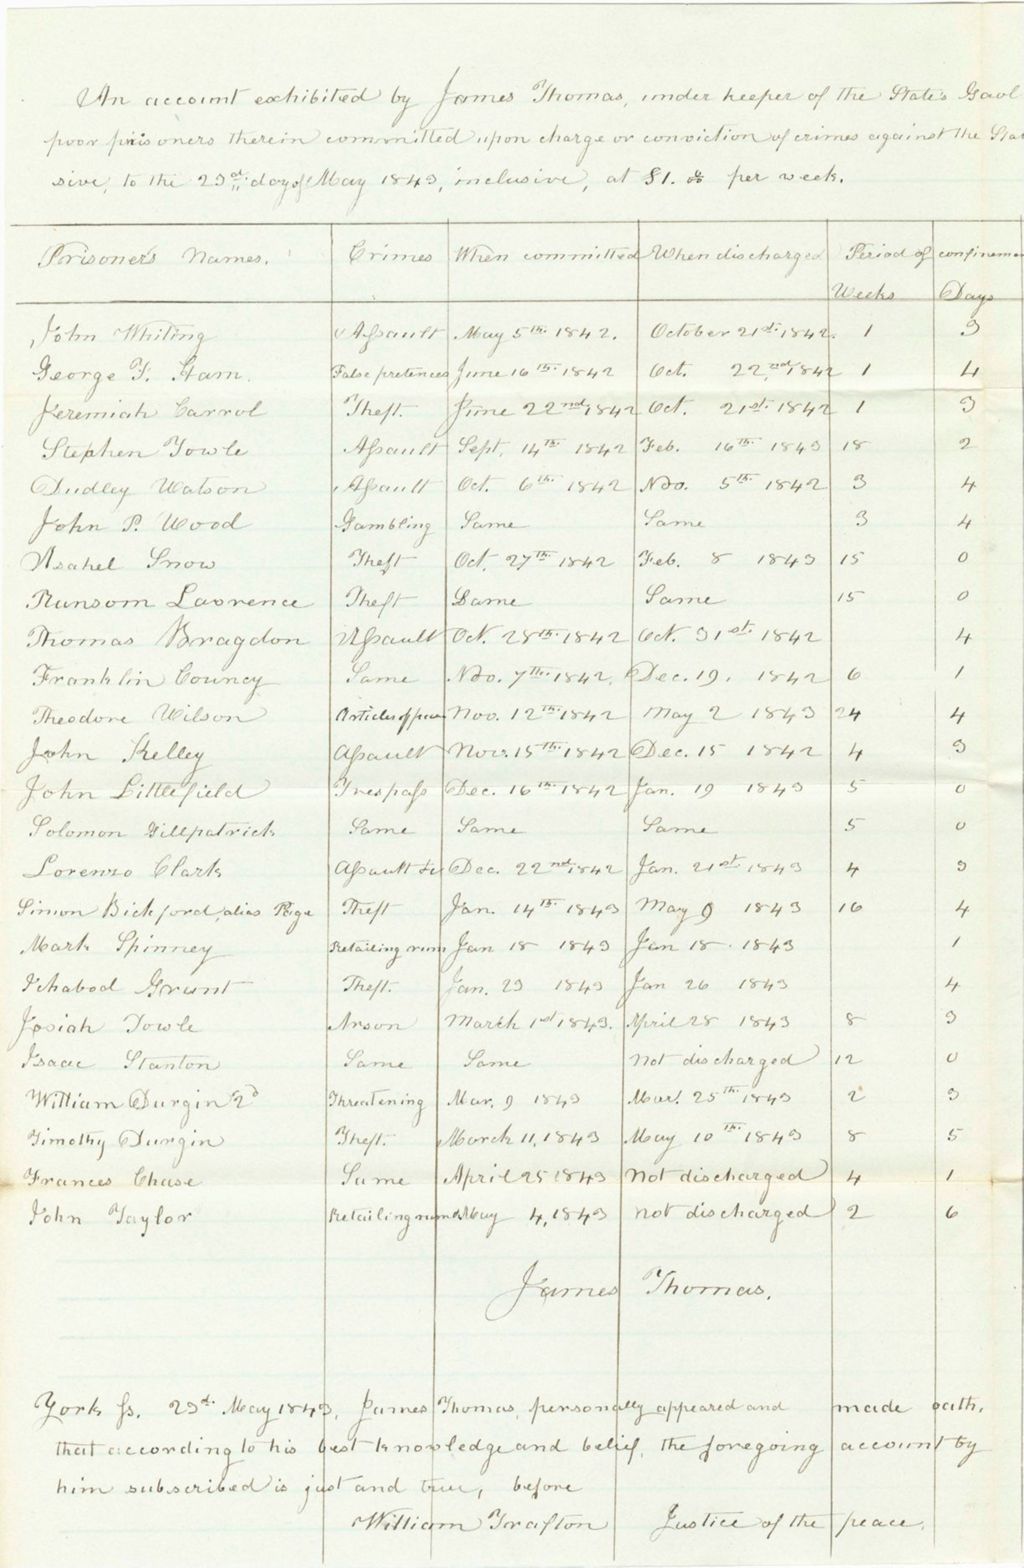 An account exhibited by James Thomas, under keeper of the State's Gaol
poor prisoners therein committed upon charge or conviction of crimes against the
sive, to the 23rd day of May 1843, inclusive, at $1.00 per week.
Prisoner's Names. Crimes When committed When discharged Period of confinemen
Weeks Days
John Whiting Assault May 5th 1842. October 21st 1842. 1 3
George F. Ham. False pretences June 16th 1842 Oct. 22nd 1842 1 4
Jeremiah Carrol Theft. June 22nd 1842 Oct. 21st 1842 1 3
Stephen Towle Assault Sept. 14th 1842 Feb. 16th 1843 18 2
Dudley Watson Assault Oct. 6th 1842 Nov. 5th 1842 3 4
John P. Wood Gambling Same Same 3 4
Asahel Snow Theft Oct. 27th 1842 Feb. 8 1843 15 0
Ransom Lawrence Theft Same Same 15 0
Thomas Bragdon Assault Oct. 28th 1842 Oct. 31st 1842 4
Franklin Same Nov. 7th 1842. Dec. 19. 1842 6 1
Theodore Wilson Articles of Nov. 12th 1842 May 2 1843 24 4
John Kelley Assault Nov. 15th 1842 Dec. 15 1842 4 3
John Littlefield Trespass Dec. 16th 1842 Jan. 19 1843 5 0
Solomon Gillpatrick Same Same Same 5 0
Lorenzo Clark Assault &c Dec. 22nd 1842 Jan. 21st 1843 4 3
Simon Bickford, alias Page Theft Jan. 14th 1843 May 9 1843 16 4
Mark Spinney Retailing rum Jan 18 1843 Jan 18. 1843 1
Ichabod Grant Theft. Jan. 23 1843 Jan 26 1843 4
Josiah Towle Arson March 1st 1843. April 28 1843 8 3
Isaac Stanton Same Same Not discharged 12 0
William Durgin 2d Threatening Mar. 9 1843 Mar. 25th 1843 2 3
Timothy Durgin Theft. March 11, 1843 May 10th 1843 8 5
Frances Chase Same April 25 1843 Not discharged 4 1
John Taylor Retailing rum May 4, 1843 Not discharged 2 6
James Thomas.
York Ss. 23d May 1843. James Thomas, personally appeared and made oath,
that according to his best knowledge and belief, the foregoing account by
him subscribed is just and true, before
William Trafton Justice of the peace.